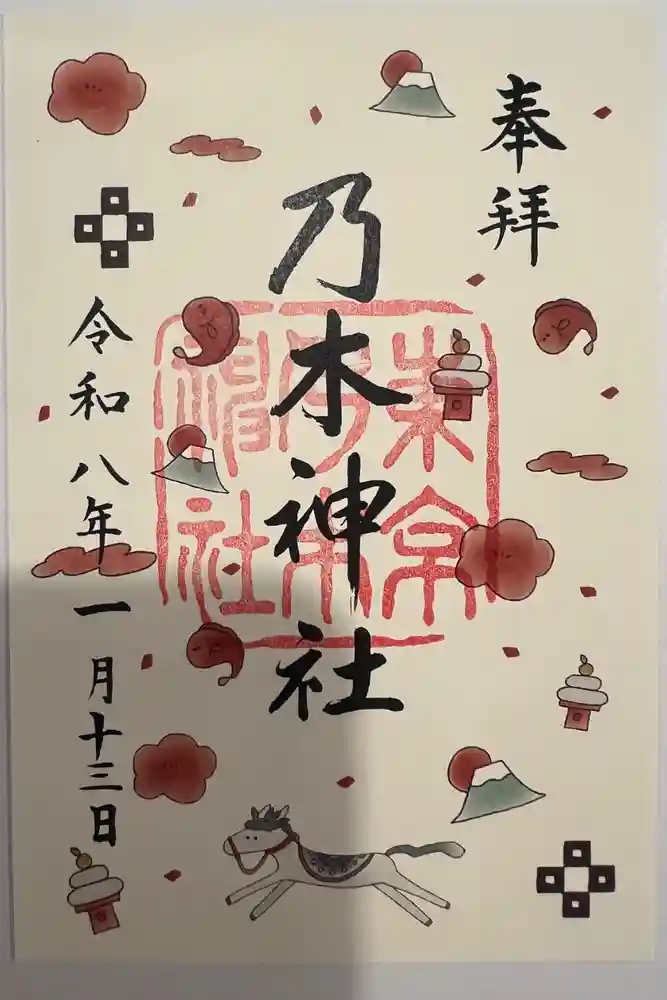 奉拝
乃木神社
東京
乃木
神社
令和八年一月十三日